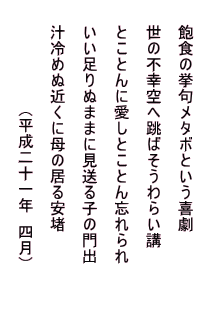 飽食の挙句メタボという喜劇
世の不幸空へ跳ばそうわらい講
とことんに愛しとことん忘れられ
いい足りぬままに見送る子の門出
汁冷めぬ近くに母の居る安堵
（平成二十一年 四月）